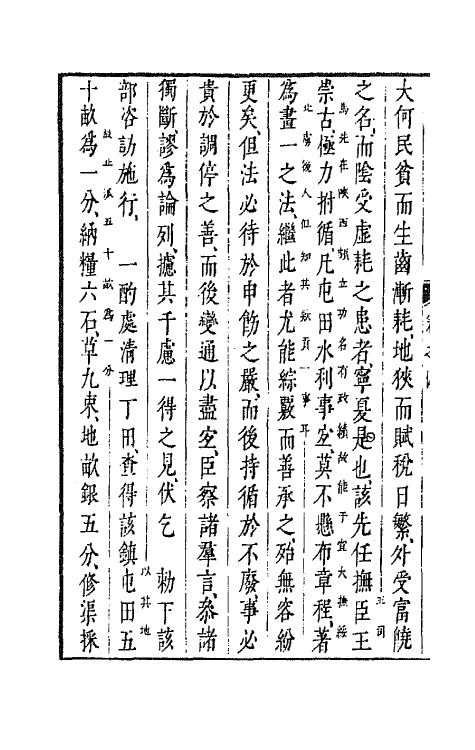 大何民貧而生齒漸耗、地狹而賦稅日繁、外受富饒
之名、而陰受虛耗之患者、寧夏是也、該先任撫臣王
王司
馬先在陝西頗立功名有政績故能于宜大撫綏
崇古、極力拊循、凡屯田水利事宜、莫不懸布章程、著
北虜後人但知其款貢一事耳
為畫一之法、繼此者尤能綜覈而善承之、殆無容紛
更矣、但法必待於申飭之嚴、而後持循於不廢事必
貴於調停之善、而後變通以盡宜、臣察諸羣言、叅諸
獨斷謬為論列、攄其千慮一得之見、伏乞 勑下該
部咨訪施行、 一酌處清理丁田、查得該鎮屯田五
以其地
故止派五十畝為一分
十畝為一分、納糧六石、草九束、地畝銀五分、修渠採